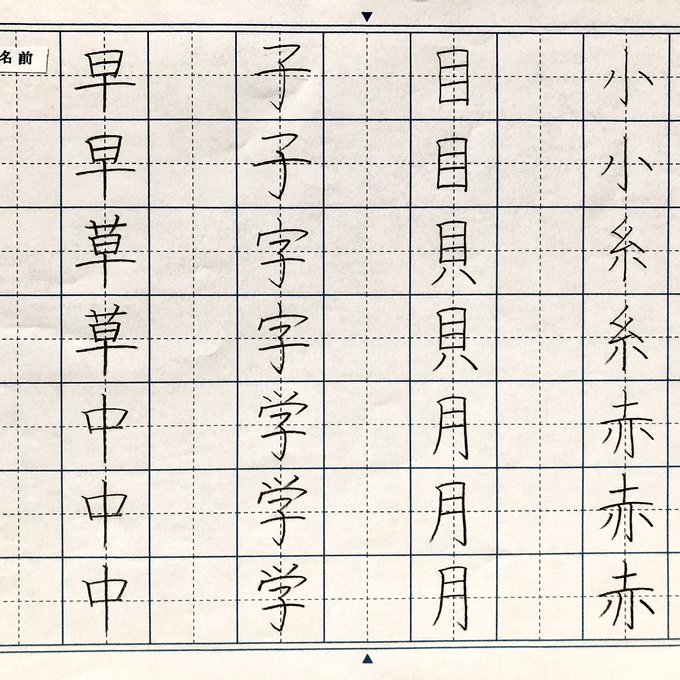 小小糸糸赤赤赤
目目貝貝月月月
子子字字学学学
早早草草中中中
名前